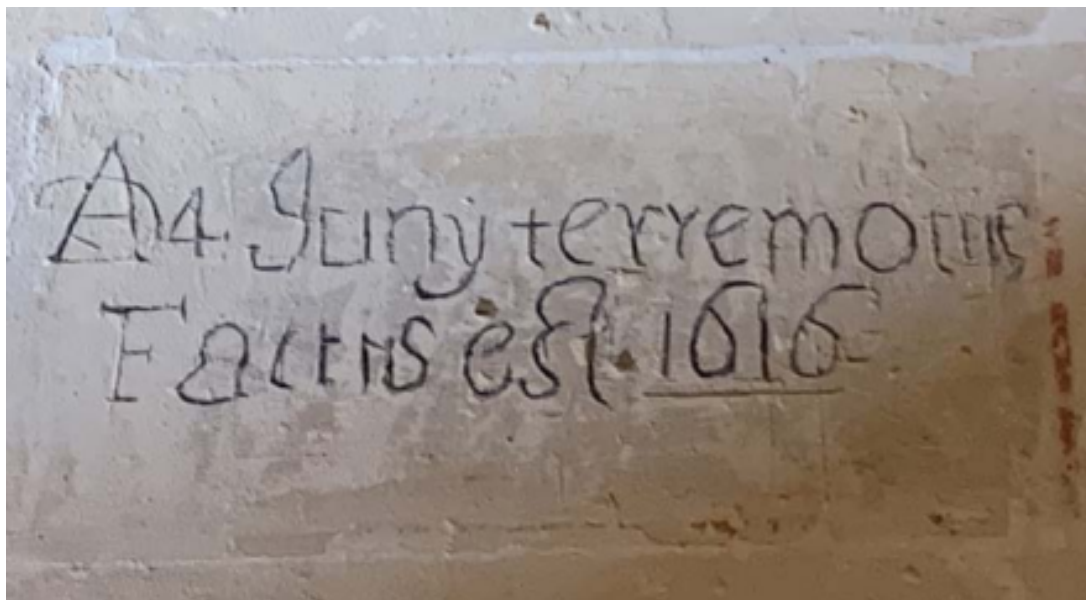 A 4. Juny terremotus
Factus est. 1616